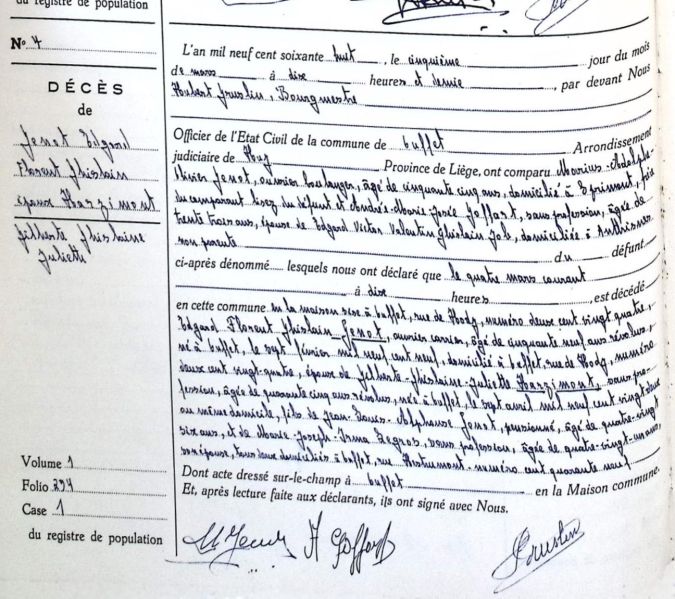 du registre de population
No 4
DÉCÈS
de
Jenot Edgard
Florent Ghislain
époux Harzimont
Gilberte Ghislaine
Juliette
Volume 1
Folio 294
Case 1
du registre de population
L'an mil neuf cent soixante huit, le cinquième jour du mois
de mars à dix heures et demie, par devant Nous
Hubert Bourgmestre
Officier de l'Etat Civil de la commune de Arrondissement
judiciaire de Huy Province de Liège, ont comparu Marius-Adolphe-
Olivier Jenot, ouvrier boulanger, âgé de cinquante cinq ans, domicilié à Esprimont, fils
du comparant lisez du défunt et Andrée-Marie-Josée Goffart, sans profession, âgée de
trente trois ans, épouse de Edgard Victor Valentin Ghislain Job, domiciliée à Anthisnes
non parente du défunt
ci-après dénommé lesquels nous ont déclaré que le quatre mars courant
à dix heures, est décédé
en cette commune en la maison sise à rue de Hody, numéro deux cent vingt quatre,
Edgard Florent Ghislain Jenot, ouvrier carrier, âgé de cinquante neuf ans révolus,
né à le sept février mil neuf cent neuf, domicilié à rue de Hody, numéro
deux cent vingt-quatre, époux de Gilberte-Ghislaine-Juliette Harzimont, sans pro-
fession, âgée de quarante cinq ans révolus, née à le sept avril mil neuf cent vingt deux
au même domicile, fils de Jean-Louis-Alphonse Jenot, pensionné, âgé de quatre-vingt
six ans, et de Marie-Joseph-Irma Legros, sans profession, âgée de quatre-vingt-un ans,
son épouse, tous deux domiciliés à rue numéro cent quarante neuf
Dont acte dressé sur-le-champ à en la Maison commune.
Et, après lecture faite aux déclarants, ils ont signé avec Nous.
M Jenot A Goffart